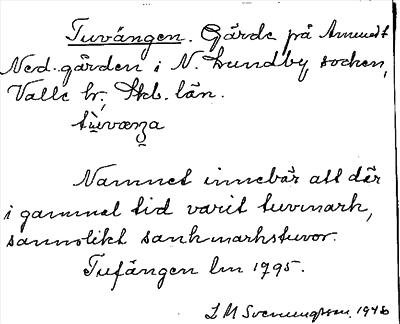 Tuvängen. Gärde på Amundt
Ned.gården i N. Lundby socken,
Valle hr, Skb. län.
tùvæŋa
Namnet innebär att där
i gammal tid varit tuvmark,
sannolikt sankmarkstuvor.
Tufängen lm 1795.
L M Svenungsson. 1948